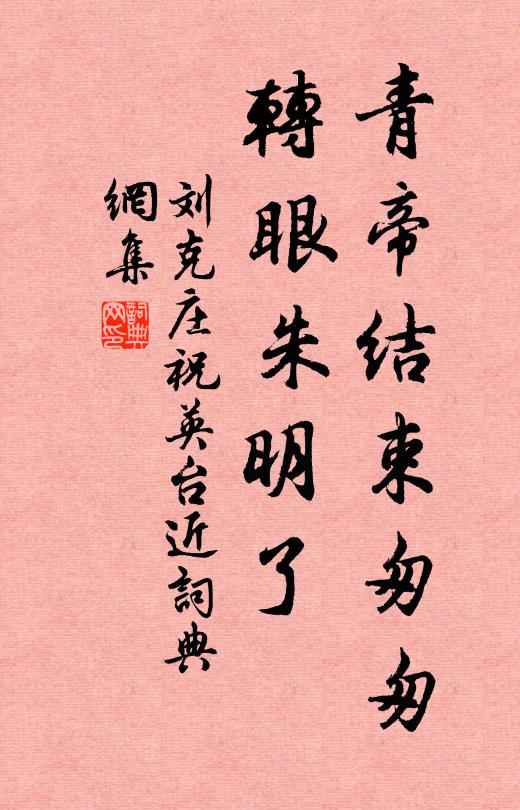 青帝结束匆匆
轉眼朱明了
刘克庄祝英台近詞典
網集
詞典網印